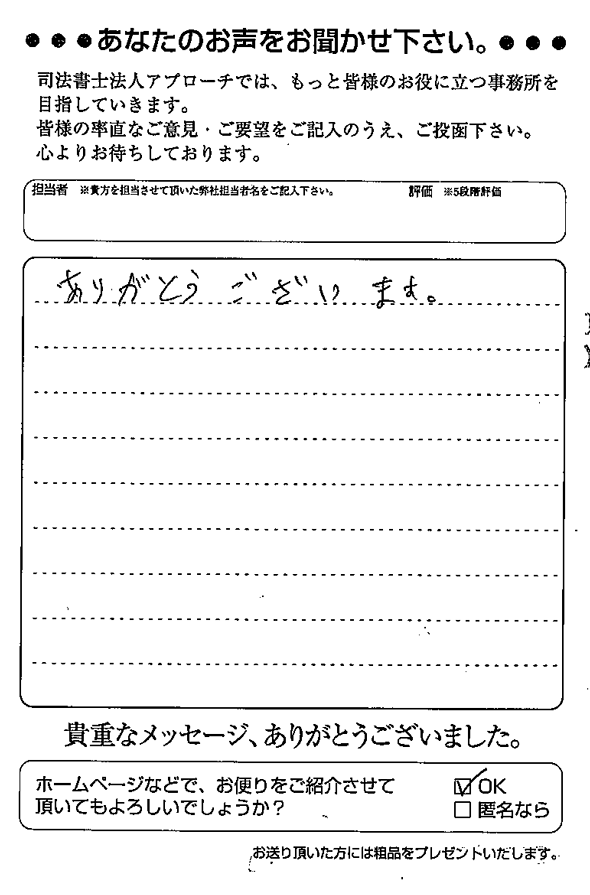 ●●●あなたのお声をお聞かせ下さい。●●●
司法書士法人アプローチでは、もっと皆様のお役に立つ事務所を
目指していきます。
皆様の率直なご意見・ご要望をご記入のうえ、ご投函下さい。
心よりお待ちしております。
担当者 ※貴方を担当させて頂いた弊社担当者名をご記入下さい。 評価 ※5段階評価
ありがとうございます。
貴重なメッセージ、ありがとうございました。
ホームページなどで、お便りをご紹介させて
頂いてもよろしいでしょうか?
☑ OK
□ 匿名なら
お送り頂いた方には粗品をプレゼントいたします。